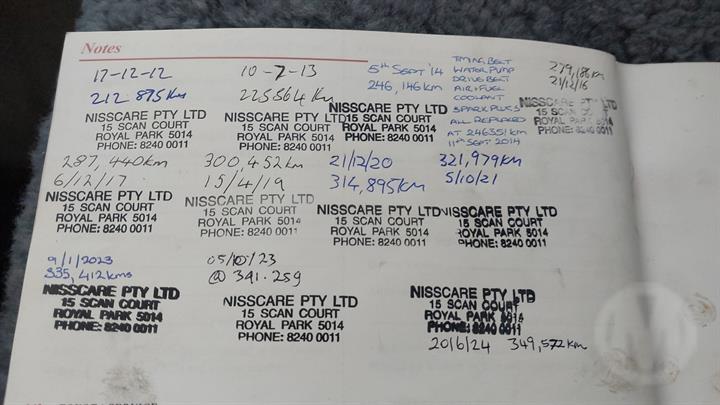 Notes
17-12-12
212 875 Km
NISSCARE PTY LTD
15 SCAN COURT
ROYAL PARK 5014
PHONE: 8240 0011
10-7-13
225564 Km
NISSCARE PTY LTD
15 SCAN COURT
ROYAL PARK 5014
PHONE: 8240 0011
5th SEPT '14
246,146km
NISSCARE PTY LTD
15 SCAN COURT
ROYAL PARK 5014
PHONE: 8240 0011
TIMING BELT
WATER PUMP
DRIVE BELT
AIR & FUEL
COOLANT
SPARK PLUGS
ALL REPLACED
AT 246351 KM
11th SEPT 2014
279,186 km
21/12/16
NISSCARE PTY LTD
15 SCAN COURT
ROYAL PARK 5014
PHONE: 8240 0011
287,440km
6/12/17
NISSCARE PTY LTD
15 SCAN COURT
ROYAL PARK 5014
PHONE: 8240 0011
300,452km
15/4/19
NISSCARE PTY LTD
15 SCAN COURT
ROYAL PARK 5014
PHONE: 8240 0011
21/12/20
314,895km
NISSCARE PTY LTD
15 SCAN COURT
ROYAL PARK 5014
PHONE: 8240 0011
321,979km
5/10/21
NISSCARE PTY LTD
15 SCAN COURT
ROYAL PARK 5014
PHONE: 8240 0011
9/1/2023
335,412kms
NISSCARE PTY LTD
15 SCAN COURT
ROYAL PARK 5014
PHONE: 8240 0011
@ 341.259
NISSCARE PTY LTD
15 SCAN COURT
ROYAL PARK 5014
PHONE: 8240 0011
NISSCARE PTY LTD
15 SCAN COURT
ROYAL PARK 5014
PHONE: 8240 0011
20/6/24 349,572km